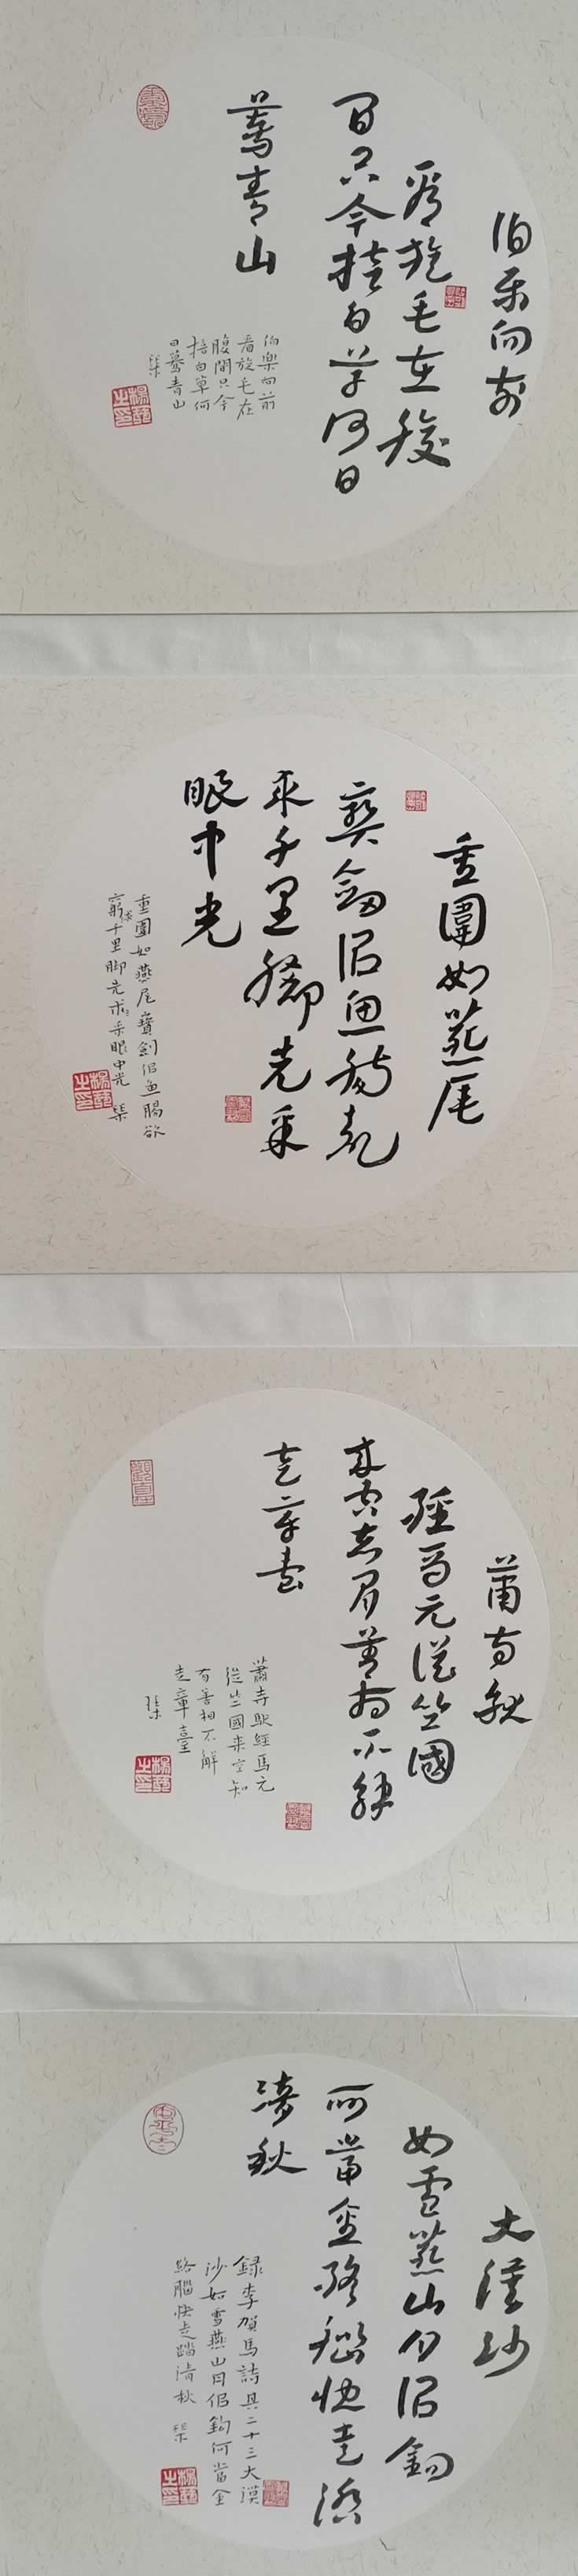 伯乐向前
看旋毛在腹
间只今掊白草何日
蓦青山
伯樂向前
看旋毛在
腹間只今
掊白草何
日驀青山
琹
重圍如燕尾
寶劍似魚腸欲
求千里腳先采
眼中光
重圍如燕尾寶劍似魚腸欲
窮求千里脚先求采眼中光 琹
蕭寺馱
經馬元從竺國
來空知有善相不解
走章臺
蕭寺馱經馬元
從竺國来空知
有善相不解
走章臺
琹
大漠沙
如雪燕山月似鉤
何當金絡腦快走踏
清秋
録李賀馬詩其二十三大漠
沙如雪燕山月似鉤何當金
絡腦快走踏清秋 琹